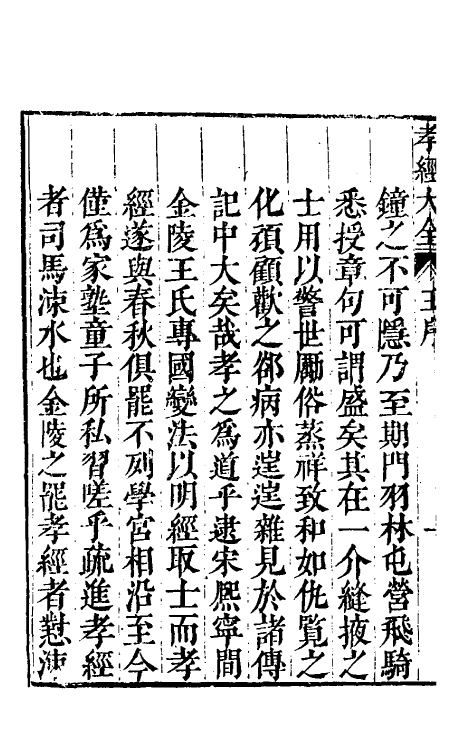 孝經大全 王序 一
鐘之不可隱乃至期門羽林屯營飛騎
悉授章句可謂盛矣其在一介縫掖之
士用以警世厲俗蒸祥致和如仇覽之
化湏顧歡之郤病亦遑遑雜見於諸傳
記中大矣哉孝之爲道乎逮宋熈寧間
金陵王氏專國變法以明經取士而孝
經遂與春秋俱罷不列學宮相沿至今
僅爲家塾童子所私習嗟乎疏進孝經
者司馬涑水也金陵之罷孝經者懟涑